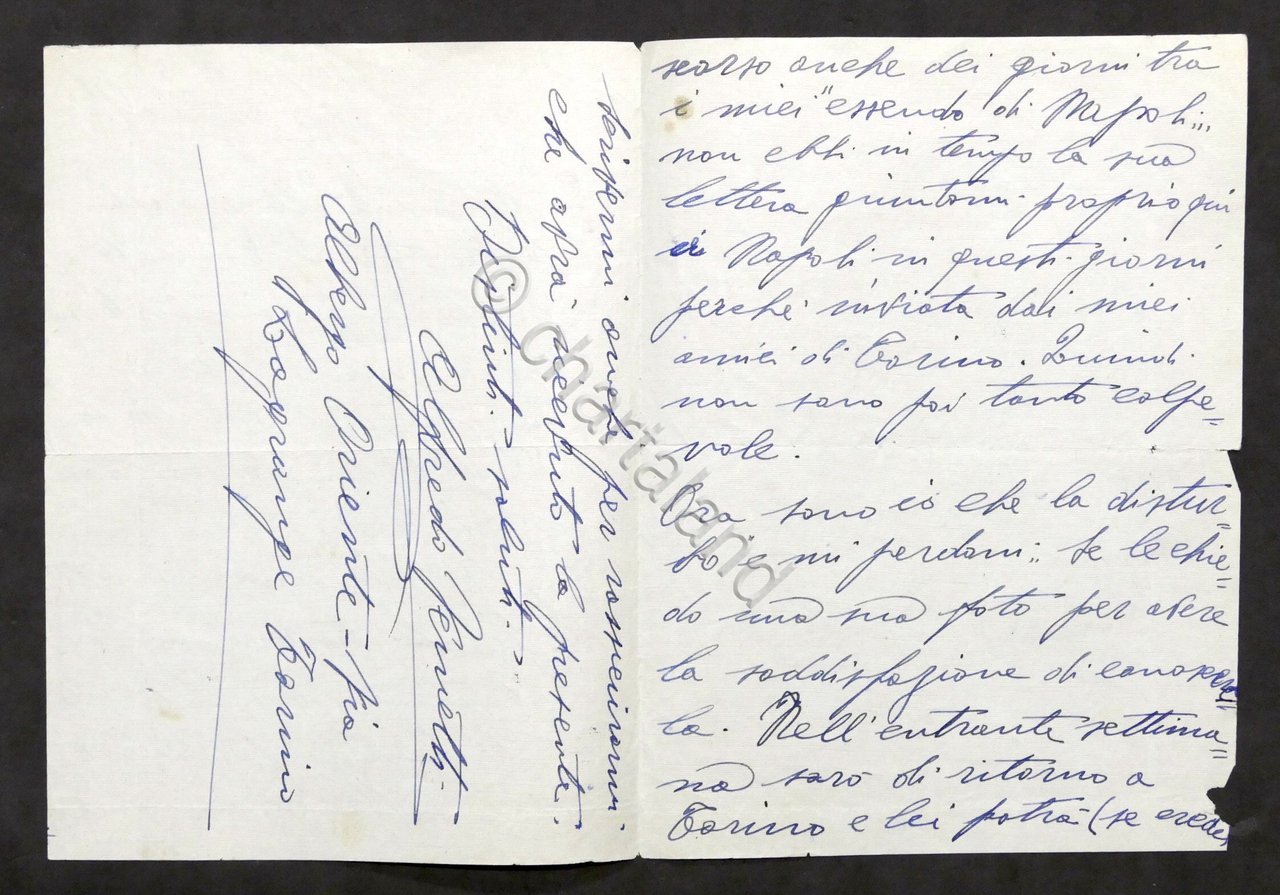 scorso anche dei giorni tra
i miei" essendo di Napoli...
non ebbi in tempo la sua
lettera giuntami proprio qui
a Napoli in questi giorni
perchè inviata dai miei
amici di Torino. Quindi
non sono poi tanto colpe=
vole.
Ora sono io che la distur=
bo e mi perdoni.. se le chie=
do una sua foto per avere
la soddisfazione di conoscer=
la. Nell'entrante settima=
na sarò di ritorno a
Torino e lei potrà (se crede)
scrivermi anche per rassicurarmi
che avrà ricevuto la presente.
Distinti saluti.
Alfredo
Albergo Oriente - Via
Lagrange Torino
© chartaland